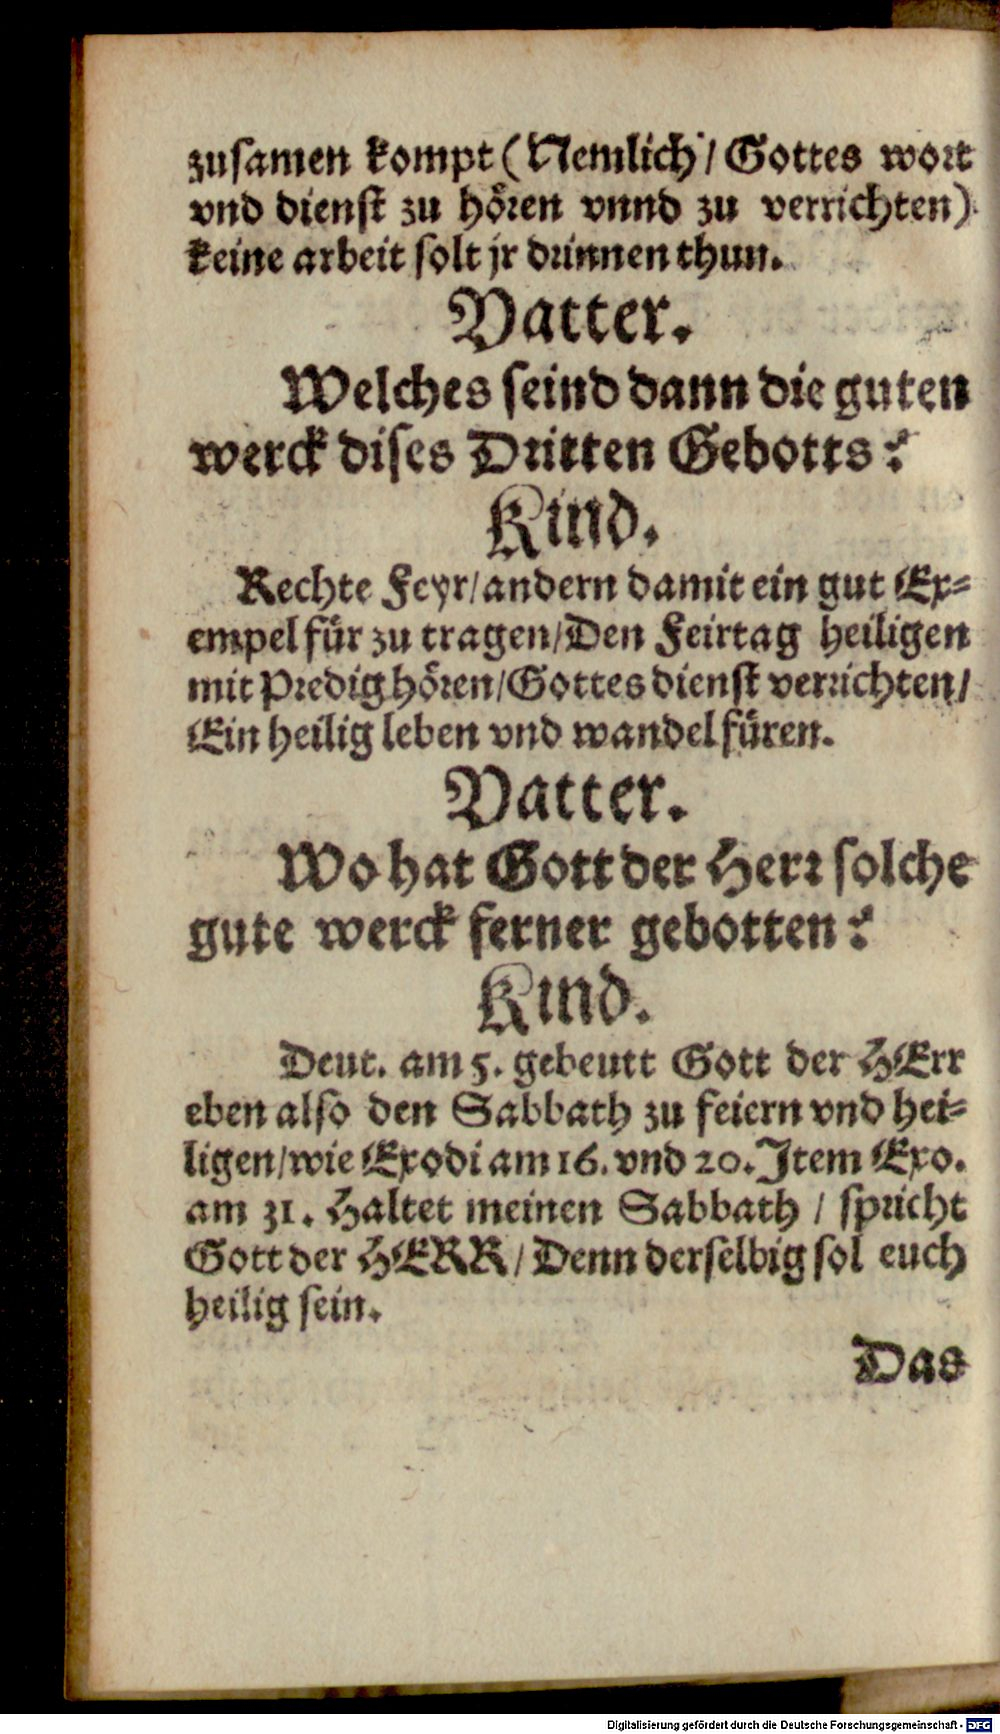 zusamen kompt (Nemlich / Gottes wort
vnd dienst zu hören vnnd zu verrichten)
keine arbeit solt jr drinnen thun.
Vatter.
Welches seind dann die guten
werck dises Dritten Gebotts?
Kind.
Rechte Feyr / andern damit ein gut Ex-
empel für zu tragen / Den Feirtag heiligen
mit Predig hören / Gottes dienst verrichten /
Ein heilig leben vnd wandel füren.
Vatter.
Wo hat Gott der Herr solche
gute werck ferner gebotten?
Kind.
Deut. am 5. gebeutt Gott der HErr
eben also den Sabbath zu feiern vnd hei-
ligen / wie Exodi am 16. vnd 20. Item Exo.
am 31. Haltet meinen Sabbath / spricht
Gott der HERR / Denn derselbig sol euch
heilig sein.
Das
Digitalisierung gefördert durch die Deutsche Forschungsgemeinschaft - DFG